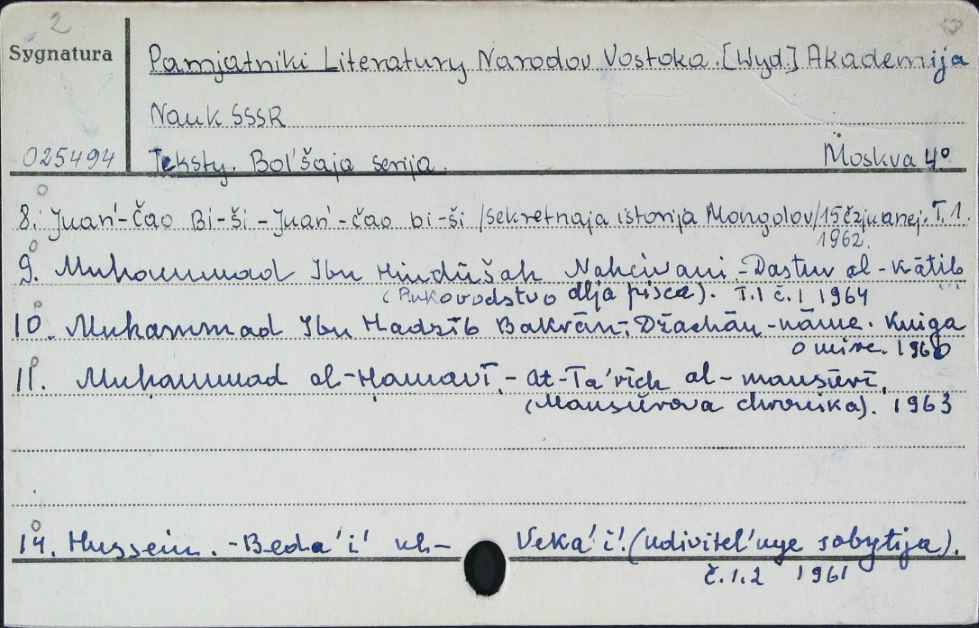 2
Sygnatura
Pamjatniki Literatury Narodov Vostoka. [Wyd] Akademija
Nauk SSSR
025494
Teksty. Bol'šaja serija.
Moskva 4°
8. Juan'-Čao Bi-ši - Juan'-čao bi-ši /Sekretnaja istorija Mongolov/ 15 čzjuanej. T.1.
1962.
9. Muhammad Ibn Hindūšah Nahčivani - Dastur al-Kātib
(Rukovodstvo dlja pisca). T.1 č.1 1964
10. Muhammad Ibn Hadžīb Bakrān. Džachān-nāme. Kniga
o mire. 1960
11. Muhammad al-Hamavī. - at-Ta'rīch al-mansūrī.
(Mansūrova chronika). 1963
14. Hussein. - Beda'i' ul- Veka'i'. (Udivitel'nye sobytija).
č.1.2 1961